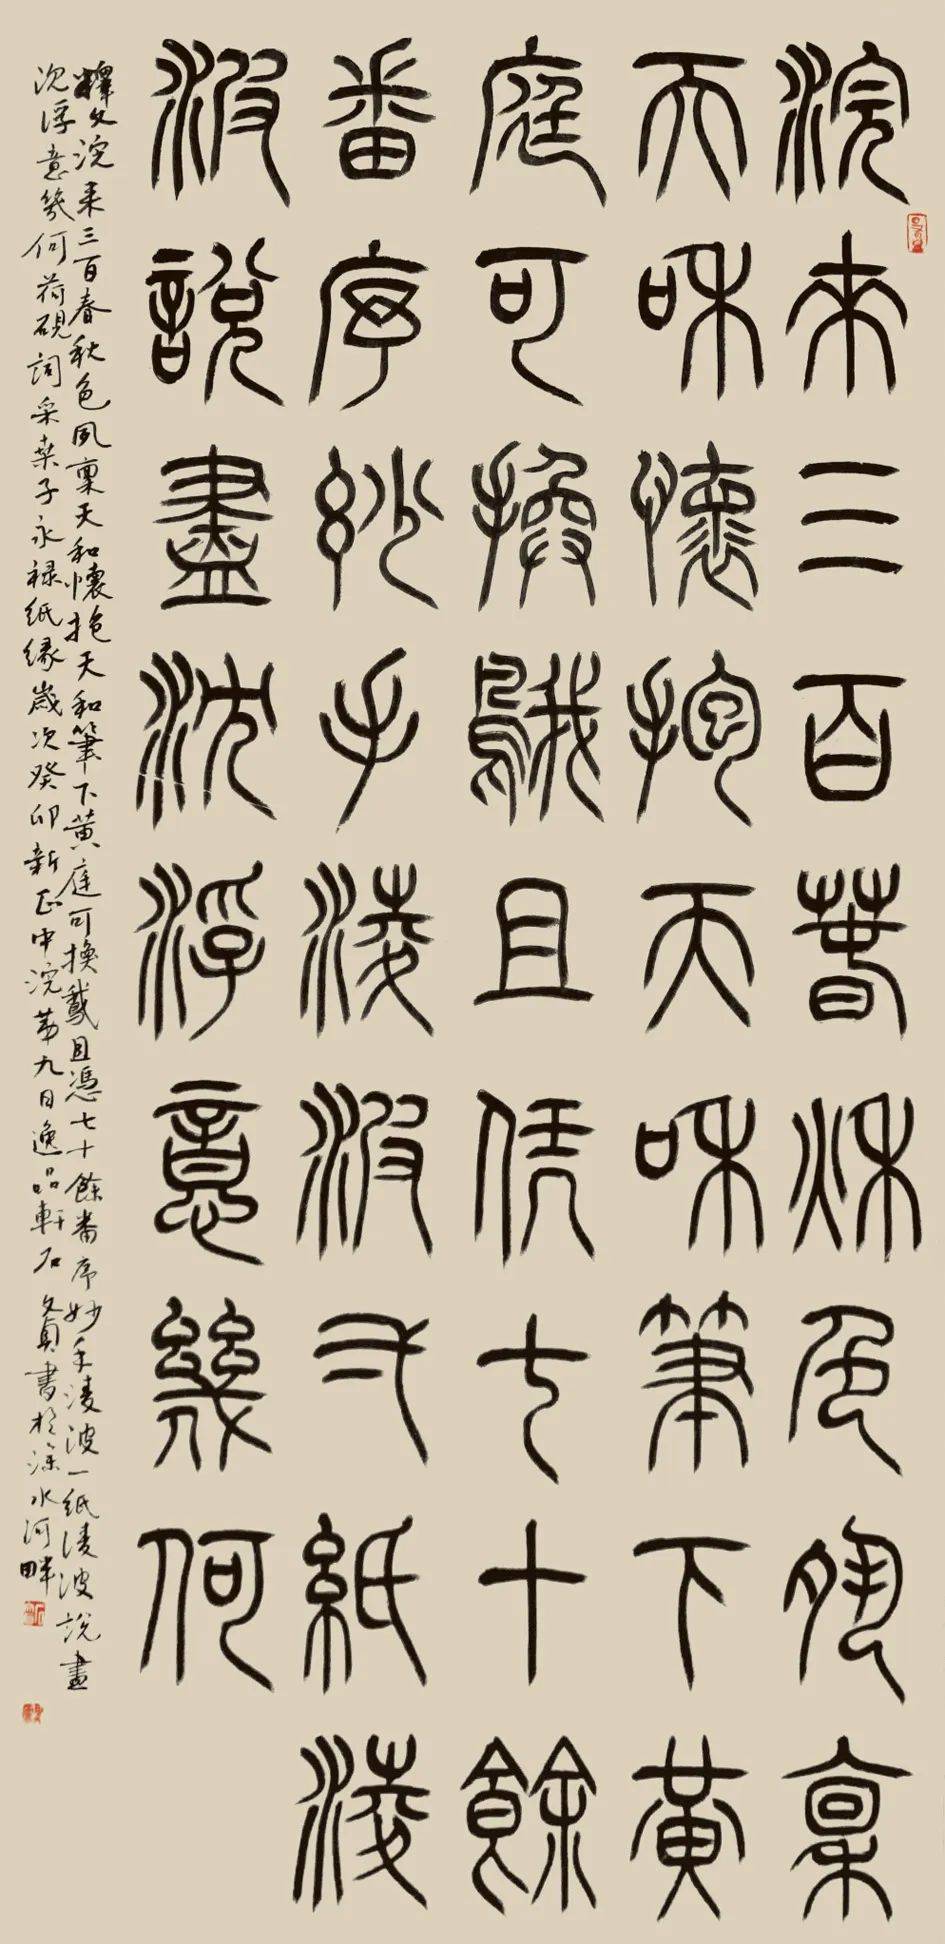 浣來三百春秋色夙稟
天和懷抱天和筆下黃
庭可換鵝且凭七十餘
番序妙手淩波弌紙淩
波說盡沈浮意幾何
釋文浣来三百春秋色夙稟天和懷抱天和筆下黃庭可換鵞且憑七十餘番序妙手淩波一紙淩波說盡
沉浮意幾何荷硯詞采桑子永祿紙緣歲次癸卯新正中浣第九日逸品軒石文書於水河畔